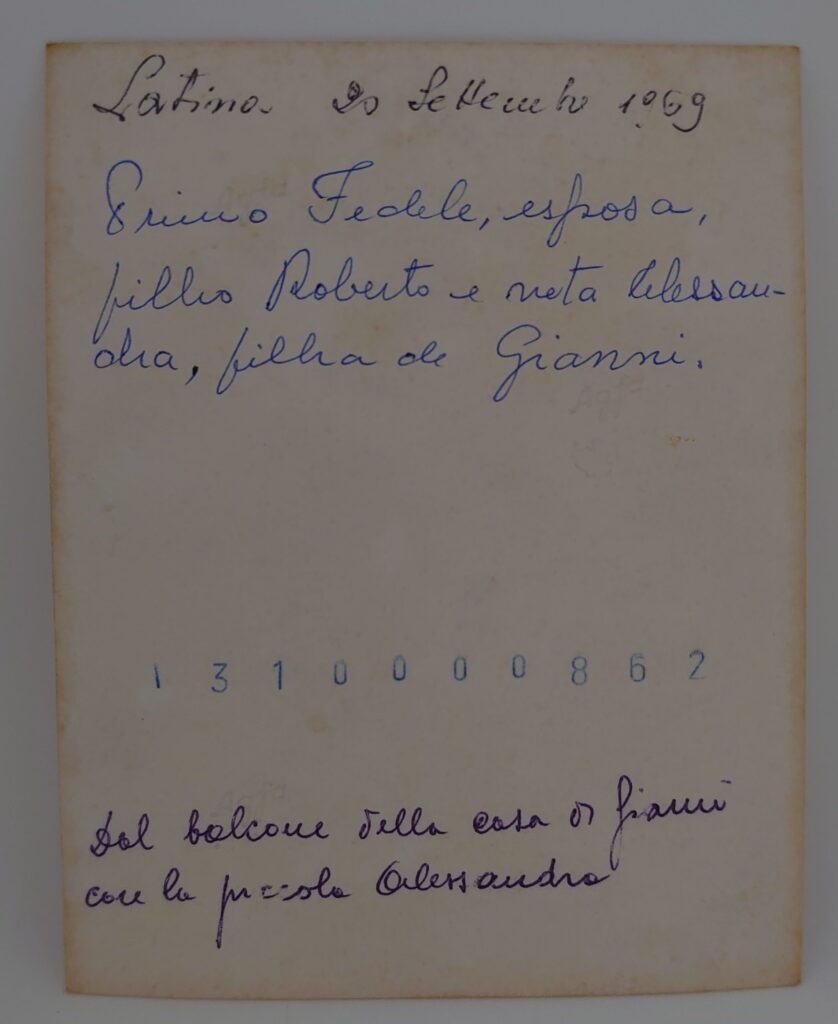 Latina 20 Settembre 1969
Primo Fedele, esposa,
filho Roberto e neta Alessan-
dra, filha de Gianni.
1310000862
Dal balcone della casa di Gianni
con la piccola Alessandra